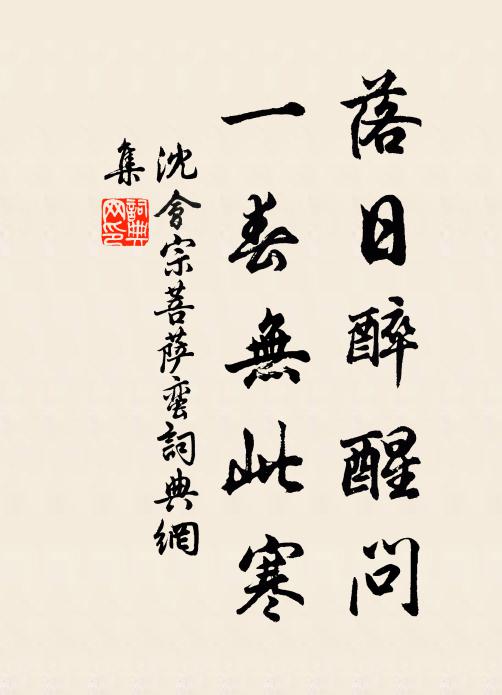 落日醉醒問
一春無此寒
沈會宗菩薩蠻詞典網
集
詞典
网印